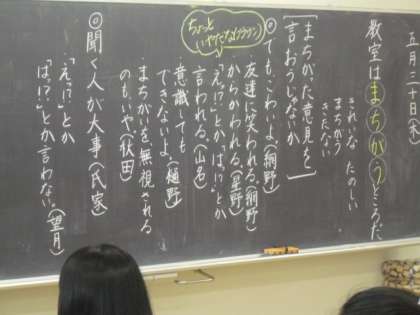 五月二十日(火)
教室はまちがうところだ
きれいな たのしい
まちがう
きたない
まちがった意見を
言おうじゃないか
ちょっと
◎でもこわいよ。(網野)
友達に笑われる。(網野)
からかわれる。(星野)
「え!?」とか「は!?」とか
言われる。(山名)
意識しても
できないよ。(樋野)
まちがいを無視される
のもいや。(秋田)
◎聞く人が大事(氏家)
「え!?」とか
「は!?」とか言わない。(望月)